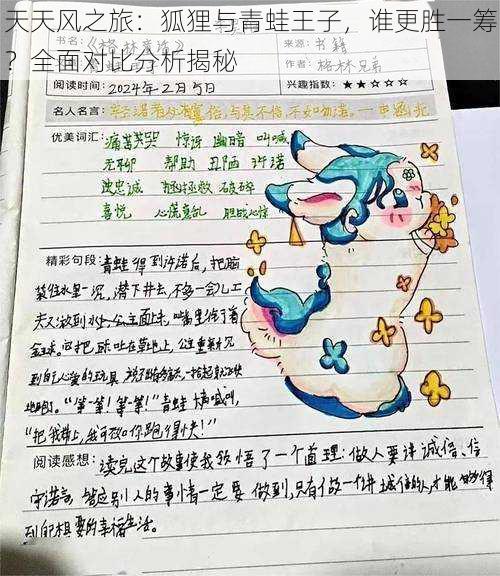 天天风之旅：狐狸与青蛙王子，谁更胜一筹
？全面对比分析揭秘
书名：《格林童话》
来源：书籍
作者：格林兄弟
阅读时间：2024年2月5日
兴趣指数：★★☆☆☆
名人名言：
与其不信，不如勿诺。
优美词汇：痛苦 哭 惊讶 幽暗 叫喊
无聊 帮助 丑陋 许诺
忠诚 拯救 破碎
喜悦 心慌意乱 胆战心惊
精彩句段：青蛙得到许诺后，把脑
袋往水里一沉，潜下井去，不多一会儿工
夫又游到水上，公主面前，嘴里衔着
金球。吐在草地上，公主重新见
到自己心爱的玩具
地跑了。“等一等！等一等！”青蛙大声喊叫，
“把我带上，我可不能像你跑得快！”
阅读感想：读完这个故事使我领悟了一个道理：做人要讲诚信、信
守诺言，答应别人的事情一定要做到，只有做一个讲诚信的人，才能够得
到自己想要的幸福生活。